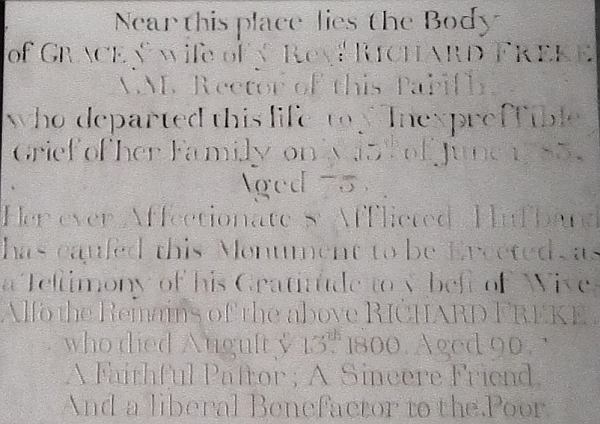 Near this place lies the Body
of GRACE yͤ wife of yͤ Revᵈ. RICHARD FREKE
A.M. Rector of this Pariſh.
who departed this life to yͤ Inexpreſſible
Grief of her Family on yͤ 13ᵗʰ of June
Aged 73.
Her ever Affectionate & Afflicted Huſband
has cauſed this Monument to be Erected, as
a Teſtimony of his Gratitude to yͤ beſt of Wives
Alſo the Remains of the above RICHARD FREKE.
who died Auguſt yͤ 13ᵗʰ. 1800. Aged 90.
A Faithful Paſtor; A Sincere Friend,
And a liberal Benefactor to the Poor.